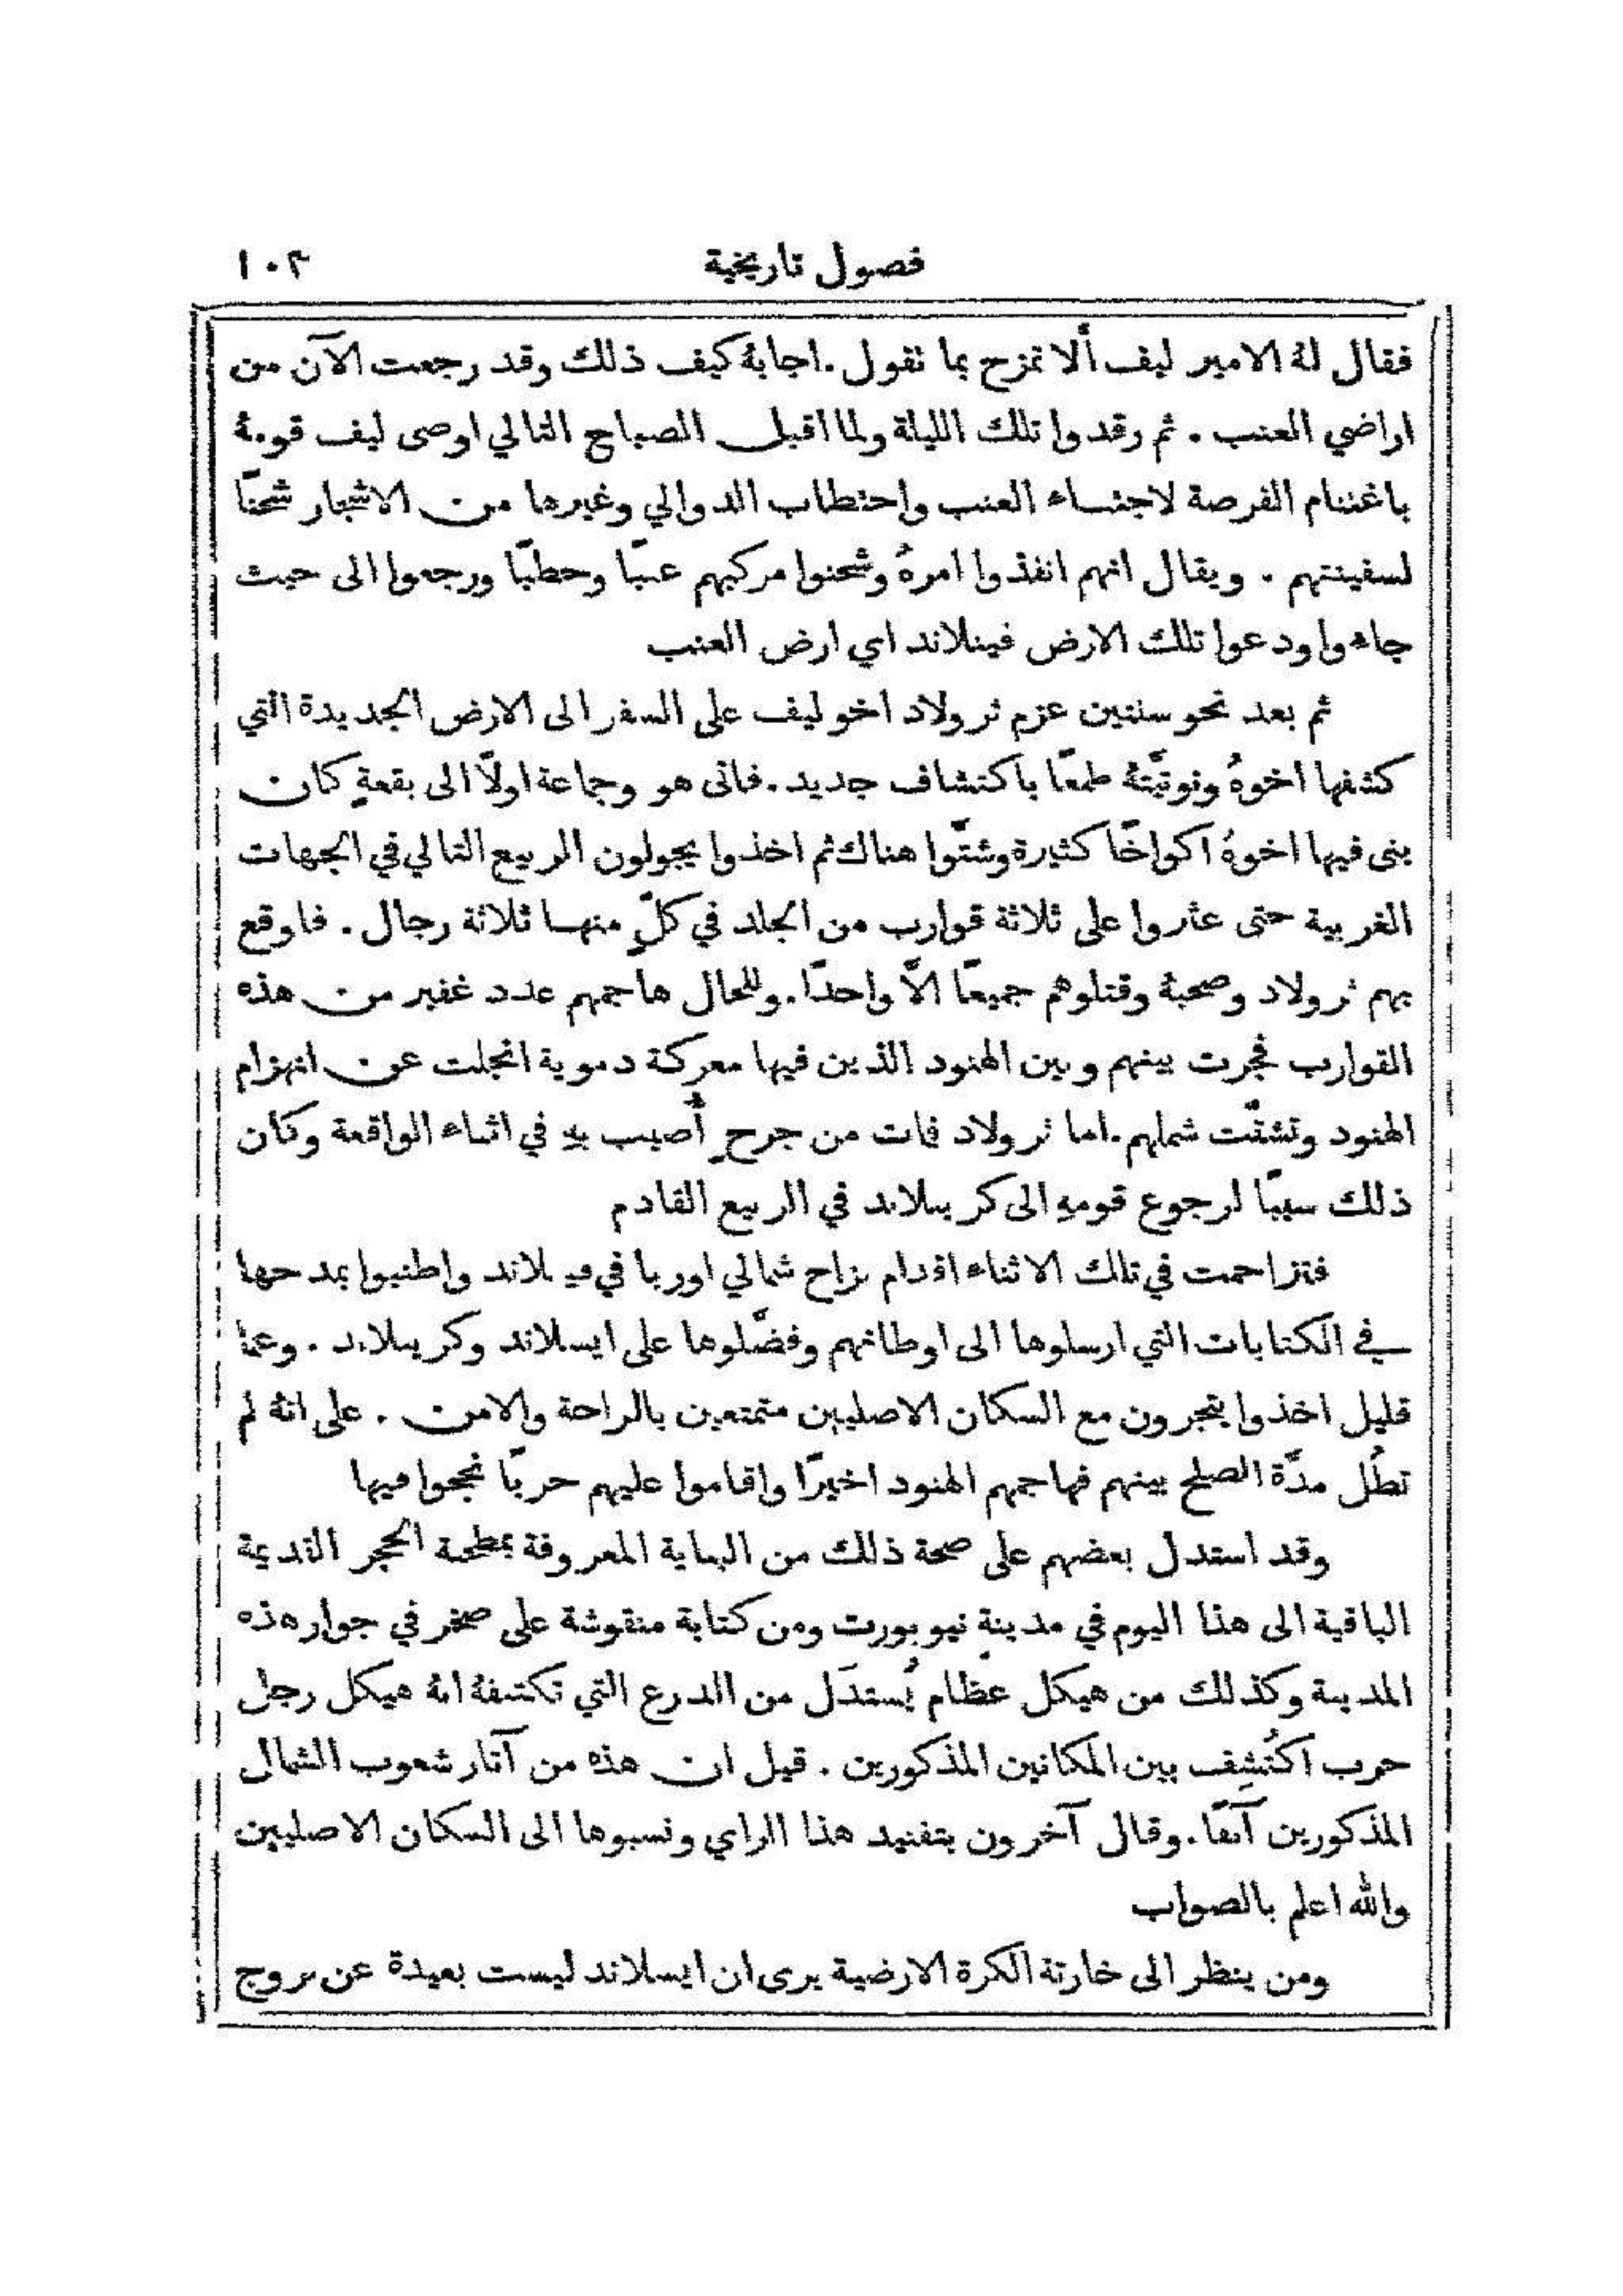 فصول تاريخية ١٠٣
فقال لهُ الامير ليف ألا تمزح بما نقول. اجابهُ كيف ذلك وقد رجعت الآن من
اراضي العنب. ثم رقدوا تلك الليلة ولما اقبل الصباح التالي اوصى ليف قومهُ
باغتنام الفرصة لاجتناء العنب واحتطاب الدوالي وغيرها من الاشجار شحنًا
لسفينتهم. ويقال انهم انفذوا امرهُ وشحنوا مركبهم عنبًا وحطبًا ورجعوا الى حيث
جاءوا ودعوا تلك الارض فينلاند اي ارض العنب
ثم بعد نحو سنتين عزم ثرولاد اخو ليف على السفر الى الارض الجديدة التي
كشفها اخوهُ ونوتيَّتهُ طمعًا باكتشاف جديد. فاتى هو وجماعة اولًا الى بقعةٍ كان
بنى فيها اخوهُ اكواخًا كثيرة وشتَّوا هناك ثم اخذوا يجولون الربيع التالي في الجهات
الغربية حتى عثروا على ثلاثة قوارب من الجلد في كلٍّ منها ثلاثة رجال. فاوقع
بهم ثرولاد وصحبهُ وقتلوهم جميعًا الَّا واحدًا. وللحال هاجمهم عدد غفير من هذه
القوارب فجرت بينهم وبين الهنود الذين فيها معركة دموية انجلت عن انهزام
الهنود وتشتُّت شملهم. اما ثرولاد فمات من جرحٍ أُصيب بهِ في اثناء الواقعة وكان
ذلك سببًا لرجوع قومهِ الى كرينلاند في الربيع القادم
فتزاحمت في تلك الاثناء اقدام نزاح شمالي اوربا في فينلاند واطنبوا بمدحها
في الكتابات التي ارسلوها الى اوطانهم وفضَّلوها على ايسلاند وكرينلاند. وعما
قليل اخذوا يتجرون مع السكان الاصليين متمتعين بالراحة والامن. على انهُ لم
تطُل مدَّة الصلح بينهم فهاجمهم الهنود اخيرًا واقاموا عليهم حربًا نجحوا فيها
وقد استدل بعضهم على صحة ذلك من البناية المعروفة بمطحنة الحجر القديمة
الباقية الى هذا اليوم في مدينةِ نيوبورت ومن كتابة منقوشة على صخر في جوار هذه
المدينة وكذلك من هيكل عظام يُستدَل من الدرع التي تكتنفهُ انهُ هيكل رجل
حرب اكتُشِف بين المكانين المذكورين. قيل ان هذه من آثار شعوب الشمال
المذكورين آنفًا. وقال آخرون بتفنيد هذا الراي ونسبوها الى السكان الاصليين
والله اعلم بالصواب
ومن ينظر الى خارتة الكرة الارضية يرى ان ايسلاند ليست بعيدة عن نروج